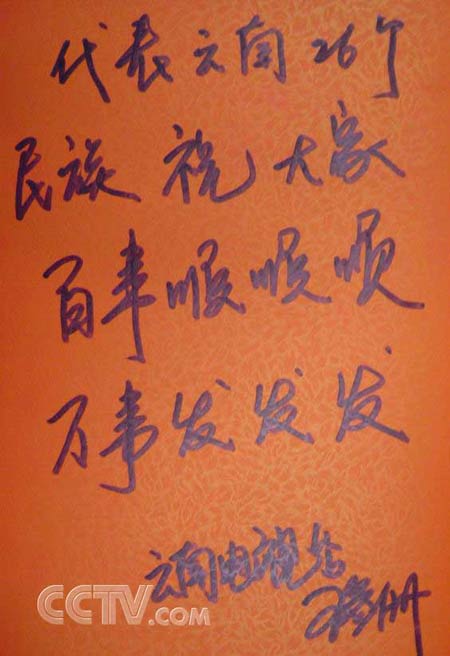 代表云南26个
民族 祝大家
百事顺顺顺
万事发发发
云南电视台
CCTV.com